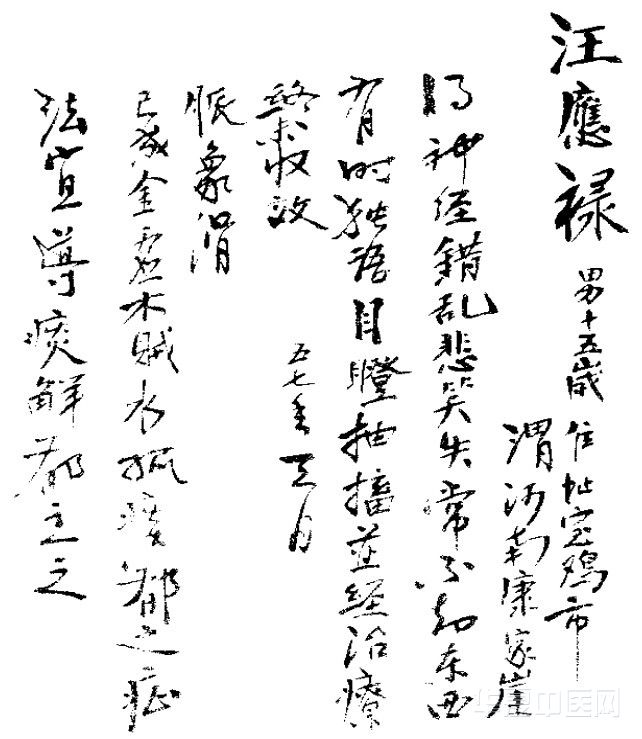 汪應禄 男十五歲 住址宝鸡市
渭河南康家崖
得神经錯乱悲笑失常不知东西
有时独语目瞪抽搐並经治療
終未收效 五七年五月
脈象滑
已成金虚木贼水孤痰郁之症
法宜導痰解郁主之
中医网